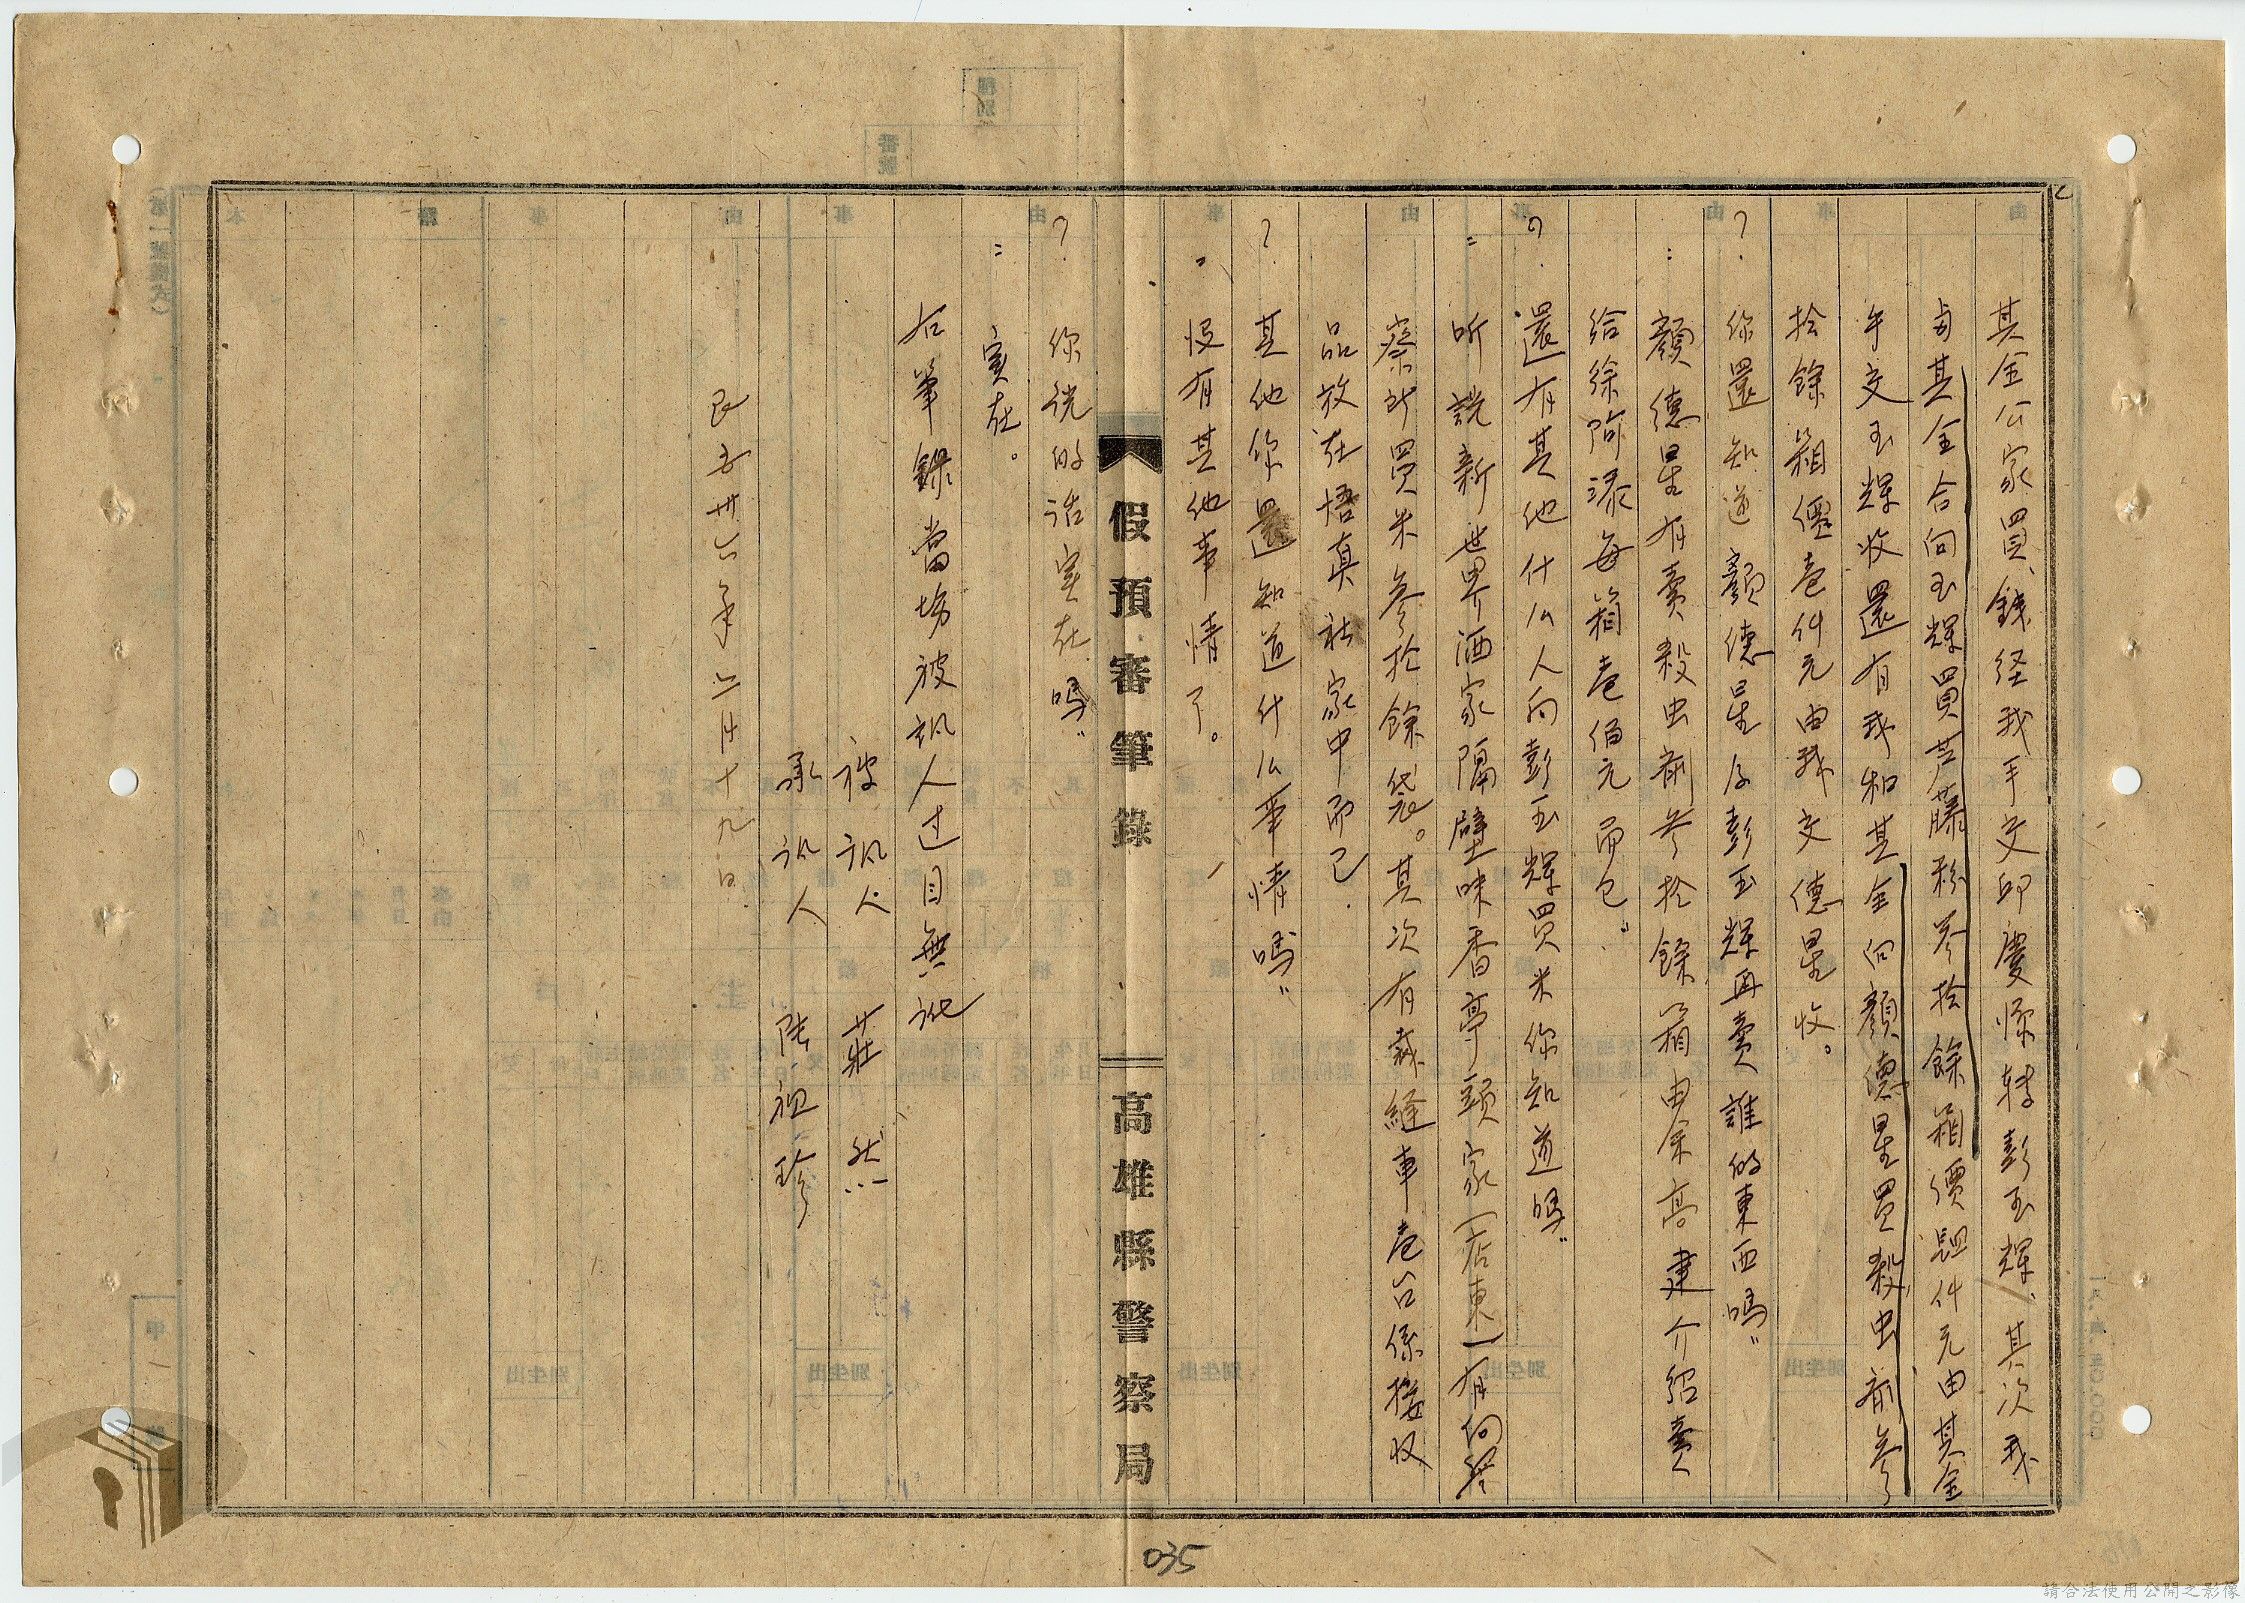 其金公家買、錢経我手交邱慶 轉彭玉輝、其次我
與其金合向玉輝買芦藤粉參拾餘箱價 仟元由其金
午交玉輝收還有我和其金向顏德星買殺虫剤參
拾餘箱價壱仟元由我交德星收。
? 你還知道顏德星及彭玉輝再賣誰的東西嗎"
: 顏德星有賣殺虫剤參拾餘箱由余高建介紹賣
給徐阿添每箱壱佰元而已"
? 還有其他什仏人向彭玉輝買米你知道嗎"
= 听說新世界酒家隔壁味香亭頭家(店東)有向
蔡 買米參拾餘袋。其次有裁縫車壱台係接收
品放在悟真社家中而已.
? 其他你還知道什仏事情嗎"
= 没有其他事情了。
假預審筆錄 高雄縣警察局
? 你說的話實在嗎"
= 實在。
右筆錄當場被訊人过目無訛
被訊人 莊然
承訊人 陳祖珍
民 卅六年六月十九日
035
請合法使用公開之影像